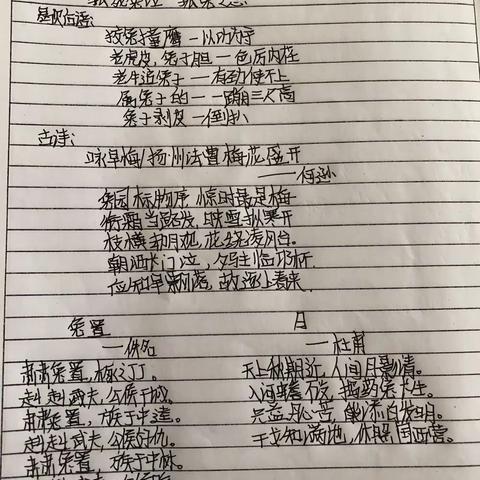 歇后语:
狡兔撞鹰—以功为守
老虎皮,兔子胆—色厉内荏
老牛追兔子—有劲使不上
属兔子的—一蹦三尺高
兔子剥皮—倒扒
古诗:
咏早梅/扬州法曹梅花盛开
——何逊
兔园标物序,惊时最是梅
衔霜当路发,映雪拟寒开
枝横却月观,花绕凌风台。
朝洒长门泣,夕驻临邛杯.
应知早飘落,故逐上春来.
兔罝
—佚名
肃肃兔罝,椓之丁丁。
赳赳武夫,公侯干城。
肃肃兔罝,施于中逵。
赳赳武夫,公侯好仇。
肃肃兔罝,施于中林。
月
—杜甫
天上秋期近,人间月影清。
入河蟾不没,捣药兔长生。
只益丹心苦,能添白发明。
干戈知满地,休照国西营。